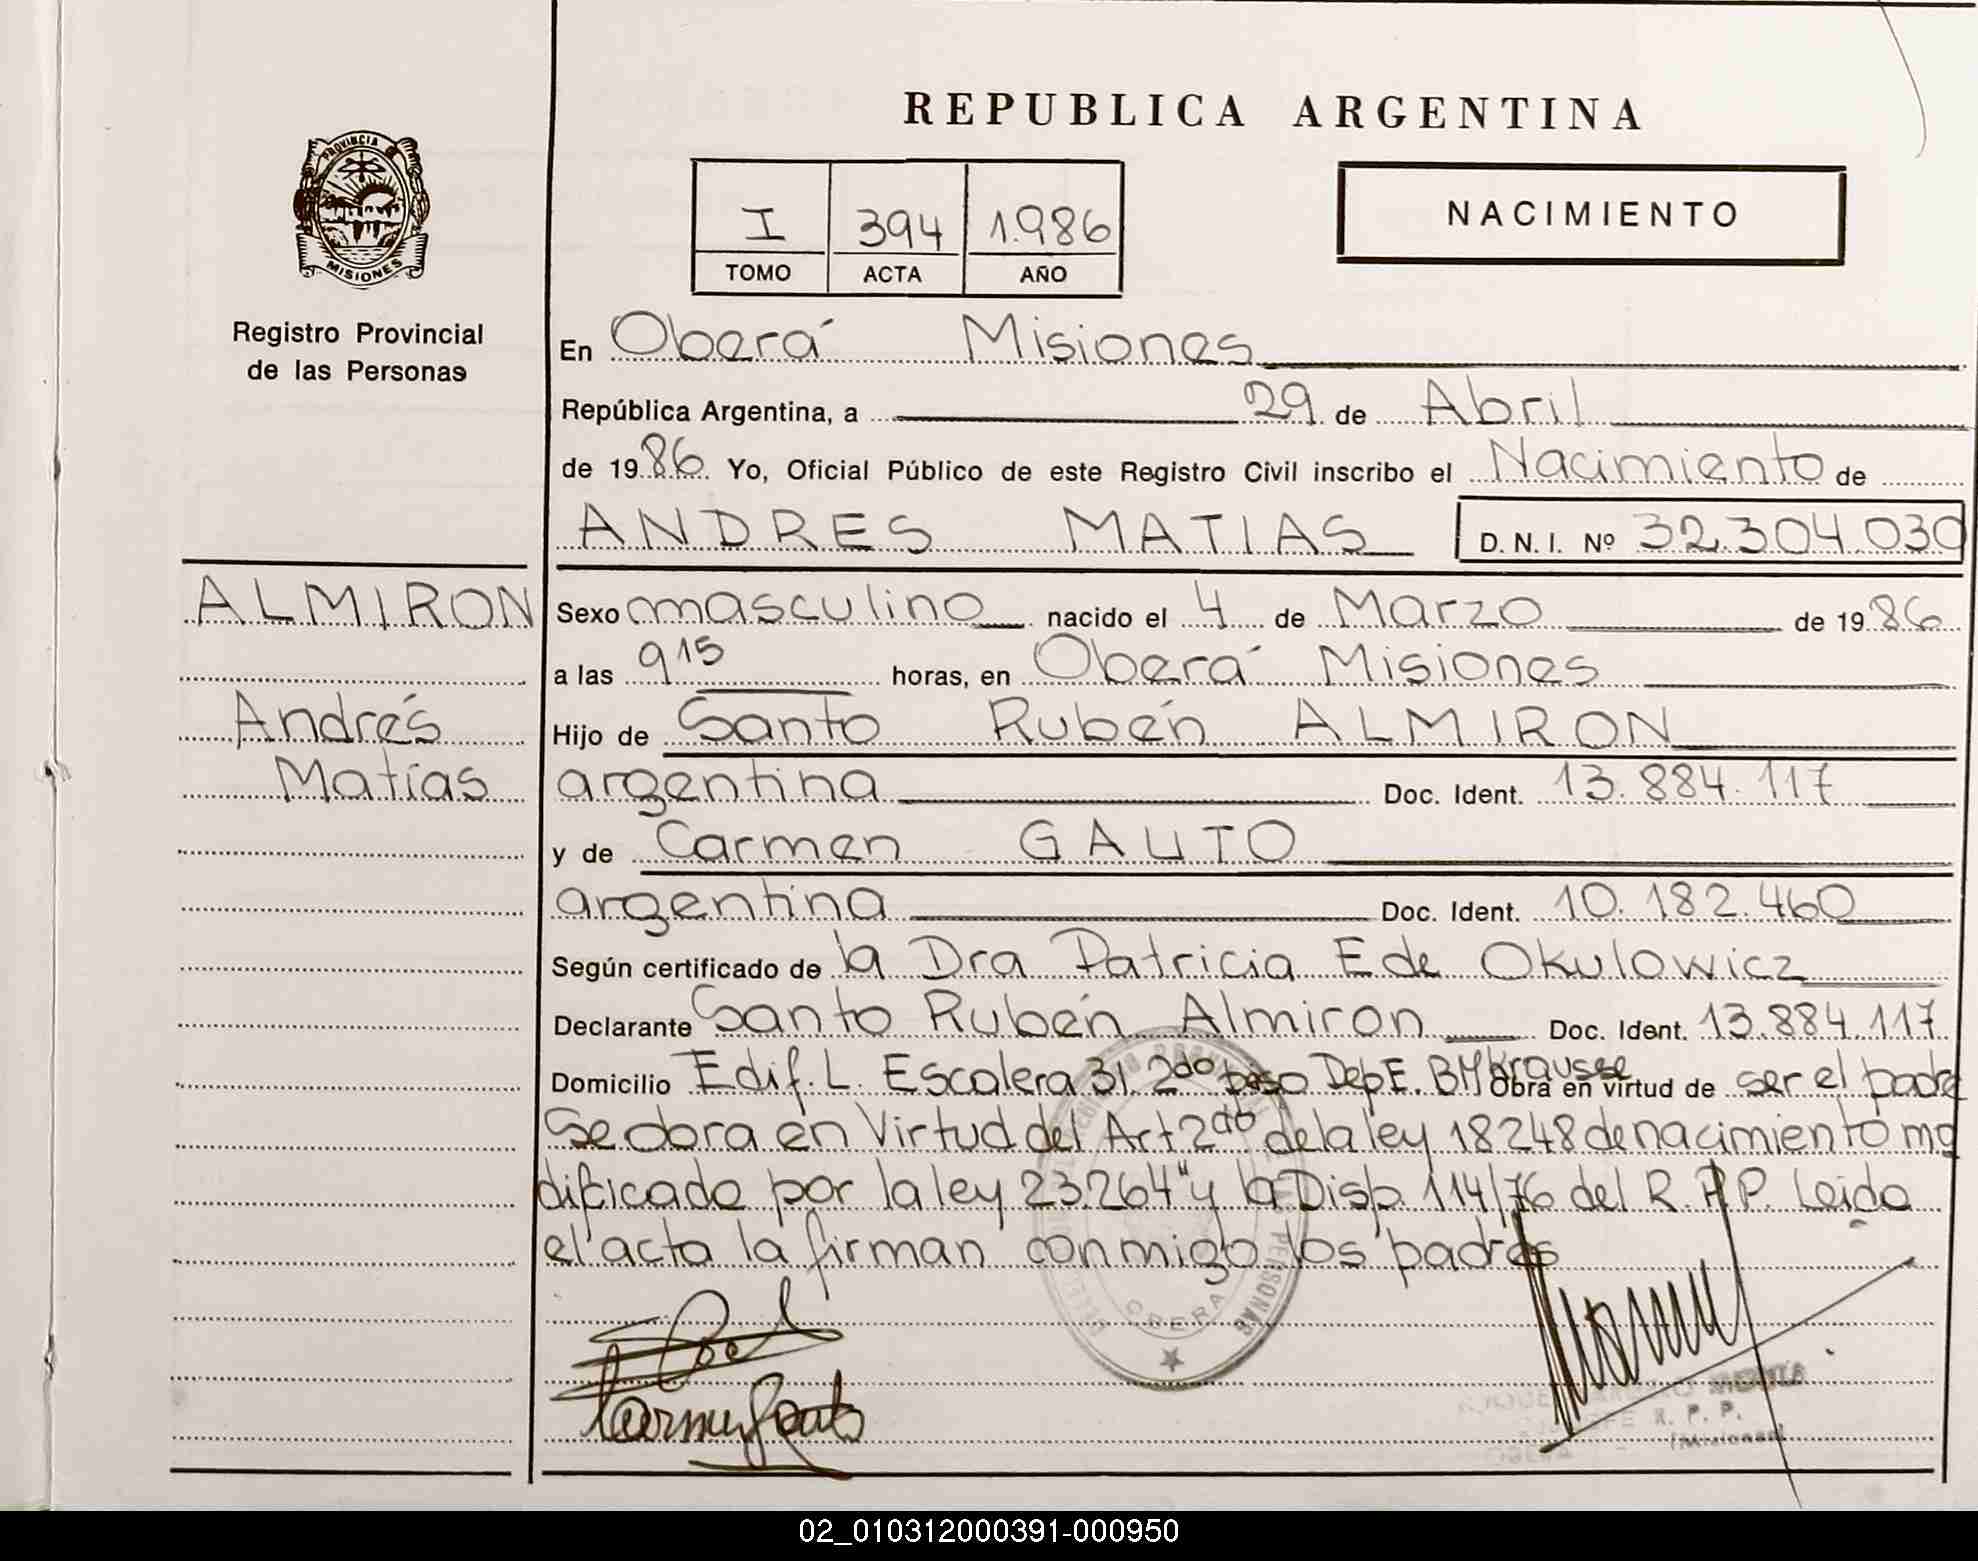 REPUBLICA ARGENTINA
PROVINCIA DE
MISIONES
Registro Provincial
de las Personas
I 394 1.986
TOMO ACTA AÑO
NACIMIENTO
En Oberá Misiones
República Argentina, a 29 de Abril
de 1986 Yo, Oficial Público de este Registro Civil inscribo el Nacimiento de
ANDRES MATIAS D. N. I. Nº 32.304.030
ALMIRON
Andrés
Matías
Sexo masculino nacido el 4 de Marzo de 1986
a las 9 15 horas, en Oberá Misiones
Hijo de Santo Rubén ALMIRON
argentina Doc. Ident. 13.884.117
y de Carmen GAUTO
argentina Doc. Ident. 10.182.460
Según certificado de la Dra Patricia E de Okulowicz
Declarante Santo Rubén Almiron Doc. Ident. 13.884.117
Domicilio Edif. L. Escalera 31. 2do piso Dep E. BM Krausse Obra en virtud de ser el padre
Se obra en Virtud del Art 2do de la ley 18248 de nacimiento mo
dificado por la ley 23.264" y la Disp. 114/76 del R.P.P. Leida
el acta la firman conmigo los padres
PERSONAS
OBERA
R. P. P.
(Misiones)
02_010312000391-000950